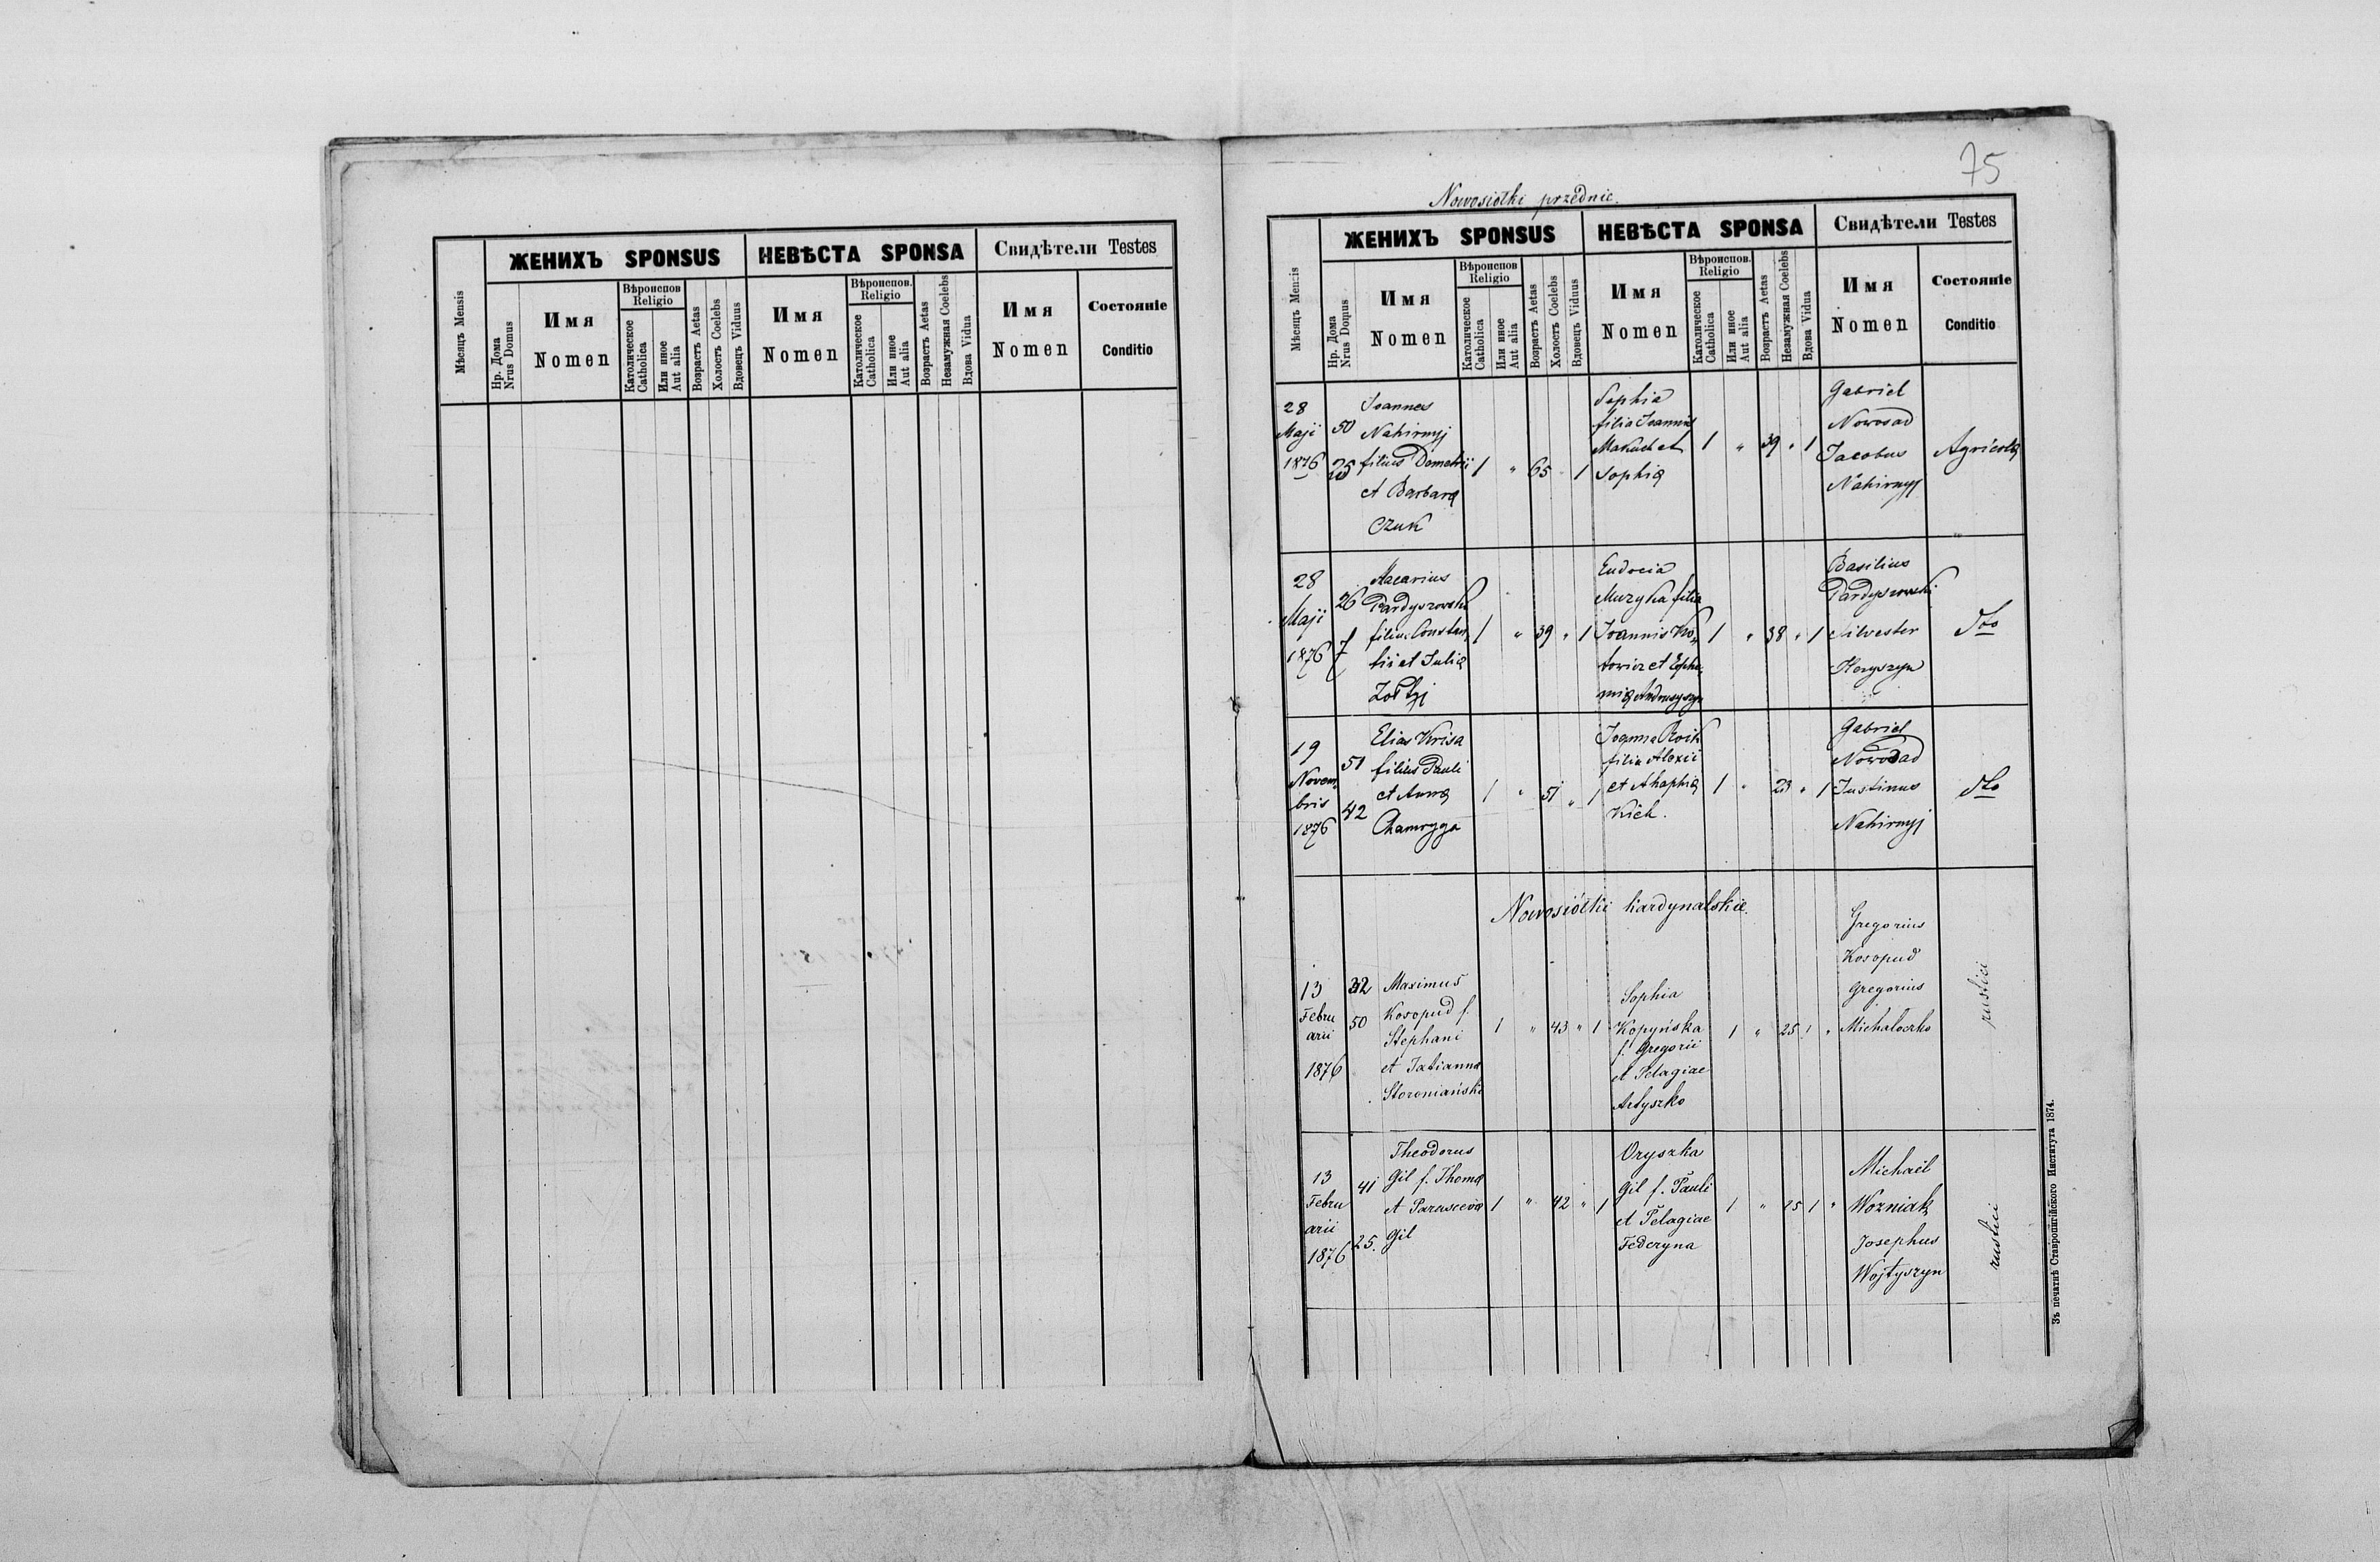 ЖЕНИХЪ SPONSUS
НЕВѢСТА SPONSA
Свидѣтели Testes
Мѣсяцъ Mensis
Нр. Дома
Nrus Domus
Имя
Nomen
Вѣроиспов
Religio
Католическое
Catholica
Или иное
Aut alia
Возрастъ Aetas
Холостъ Coelebs
Вдовецъ Viduus
Имя
Nomen
Вѣроиспов.
Religio
Католическое
Catholica
Или иное
Aut alia
Возрастъ Aetas
Незамужная Coelebs
Вдова Vidua
Имя
Nomen
Состояніе
Conditio
75
Nowosiółki przednie.
ЖЕНИХЪ SPONSUS
НЕВѢСТА SPONSA
Свидѣтели Testes
Мѣсяцъ Mensis
Нр. Дома
Nrus Domus
Имя
Nomen
Вѣроиспов
Religio
Католическое
Catholica
Или иное
Aut alia
Возрастъ Aetas
Холостъ Coelebs
Вдовецъ Viduus
Имя
Nomen
Вѣроиспов.
Religio
Католическое
Catholica
Или иное
Aut alia
Возрастъ Aetas
Незамужная Coelebs
Вдова Vidua
Имя
Nomen
Состояніе
Conditio
28
Maji
1876
50
25
Joannes
Nahirnyj
filius Demetrii
et Barbara
Czuk
1 " 65 " 1
Sophia
filia Joannis
Makuch et
Sophia
1 " 39 " 1
Gabriel
Nowosad
Jacobus
Nahirnyj
Agricola
28
Maji
1876
26
7
Macarius
Pardyszowski
filius Constan
tii et Julia
Zołtyj
1 " 39 " 1
Eudocia
Muzyka filia
Joannis
et Euphe
mia
1 " 38 " 1
Basilius
Pardyszowski
Silvester
Heryszyn
dto
19
Novem
bris
1876
51
42
Elias Krisa
filius Pauli
et Anna
Chamryga
1 " 51 " 1
Joanna Roik
filia Alexii
et Ahaphia
Kich.
1 " 23 " 1
Gabriel
Nowosad
Justinus
Nahirnyj
dto
Nowosiółki kardynalskie.
13
Febru
arii
1876
32
50
Maximus
Kosopud f.
Stephani
et Tatianna
Storoniański
1 " 43 " 1
Sophia
Kopyńska
f. Gregorii
et Pelagiae
Artyszko
1 " 25 1 "
Gregorius
Kosopud
Gregorius
Michaloczko
rustici
13
Febru
arii
1876
41
25.
Theodorus
Gil f. Thoma
et Parascevia
Gil
1 " 42 " 1
Oryszka
Gil f. Pauli
et Pelagiae
Federyna
1 " 25 1 "
Michaël
Wozniak
Josephus
Wojtyszyn
rustici
Зъ печатнѣ Ставропигійского Института 1874.